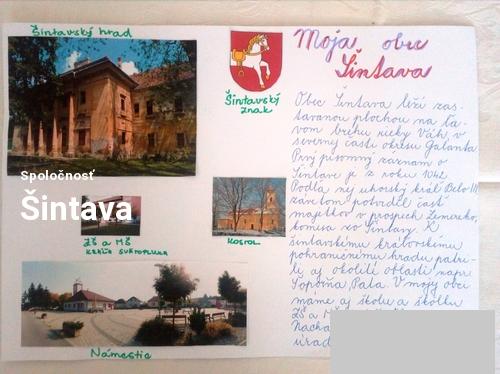 Šintavský hrad
Spoločnosť
Šintava
ZŠ a MŠ
Námestie
Šintavský
znak
Kostol
Moja obec
Šintava
Obec Šintava leží zas-
tavanou plochou na ľa-
vom brehu rieky Váh, v
severnej časti okresu Galanta.
Prvý písomný záznam o
Šintave je z roku 1042.
Podľa nej uhorský kráľ Belo III
potvrdil časť
majetkov v prospech
komisa zo Šintavy. K
šintavskému kráľovskému
pohraničnému hradu patri-
li aj okolité oblasti napr.
Sopoňa, Pata. V mojej obci
máme aj školu a škôlku
ZŠ a MŠ